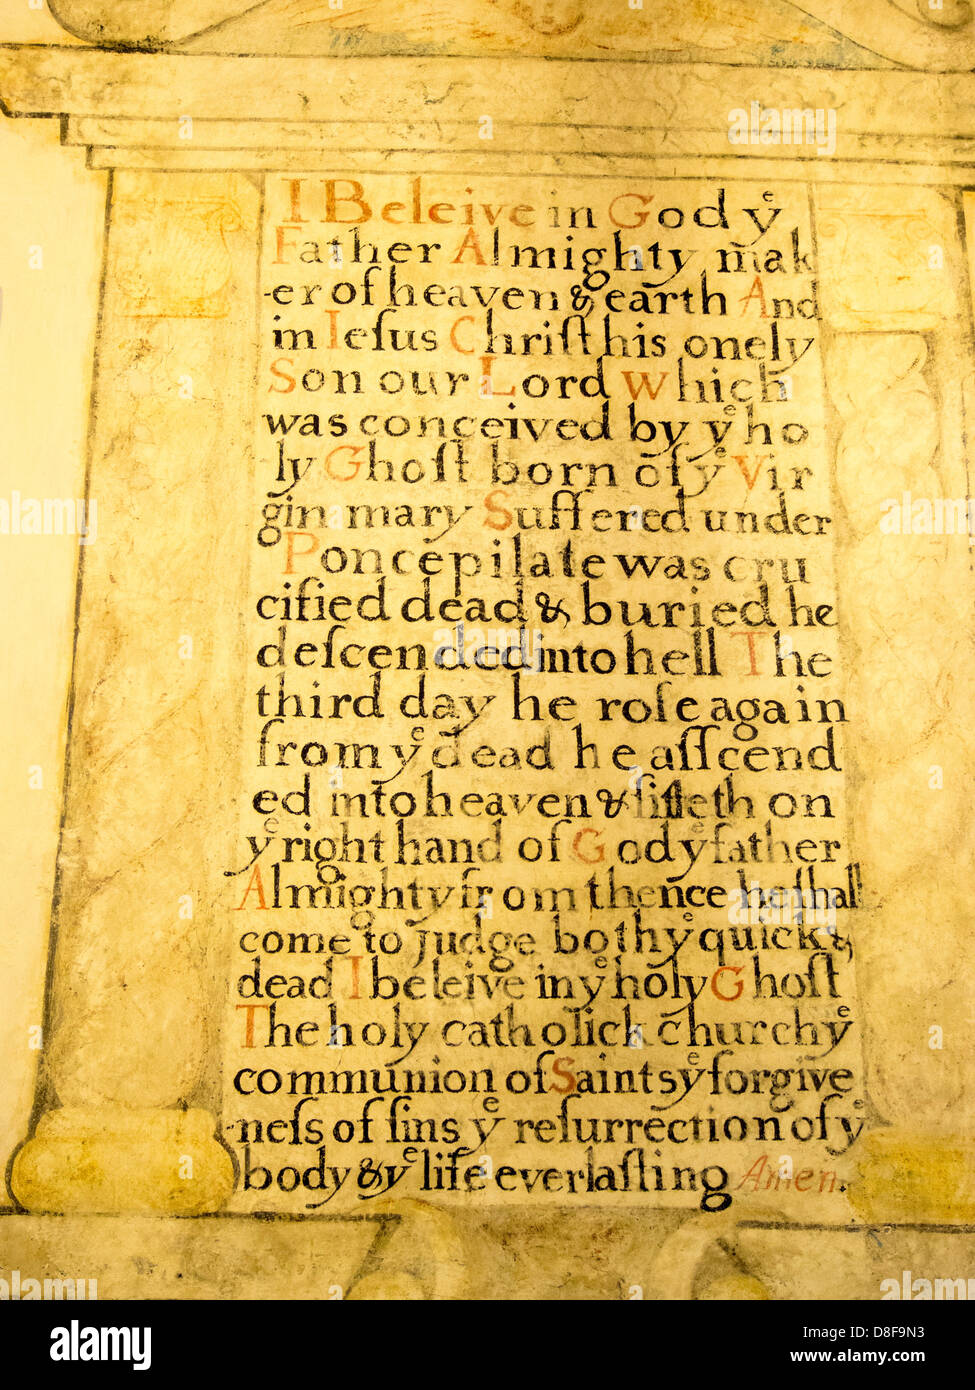 I Beleive in God yͤ
Father Almighty mak
-er of heaven & earth And
in Ieſus Chriſt his onely
Son our Lord Which
was conceived by yͤ ho
ly Ghoſt born of yͤ Vir
gin mary Suffered under
Ponce pilate was cru
cified dead & buried he
deſcended into hell The
third day he roſe again
from yͤ dead he aſſcend
ed into heaven & ſitteth on
yͤ right hand of God yͤ father
Almighty from thence he ſhall
come to judge both yͤ quick &
dead I beleive in yͤ holy Ghoſt
The holy catholick church yͤ
communion of Saints yͤ forgive
-neſs of ſins yͤ reſurrection of yͤ
body & yͤ life everlaſting Amen.
alamy stock photo
D8F9N3
www.alamy.com